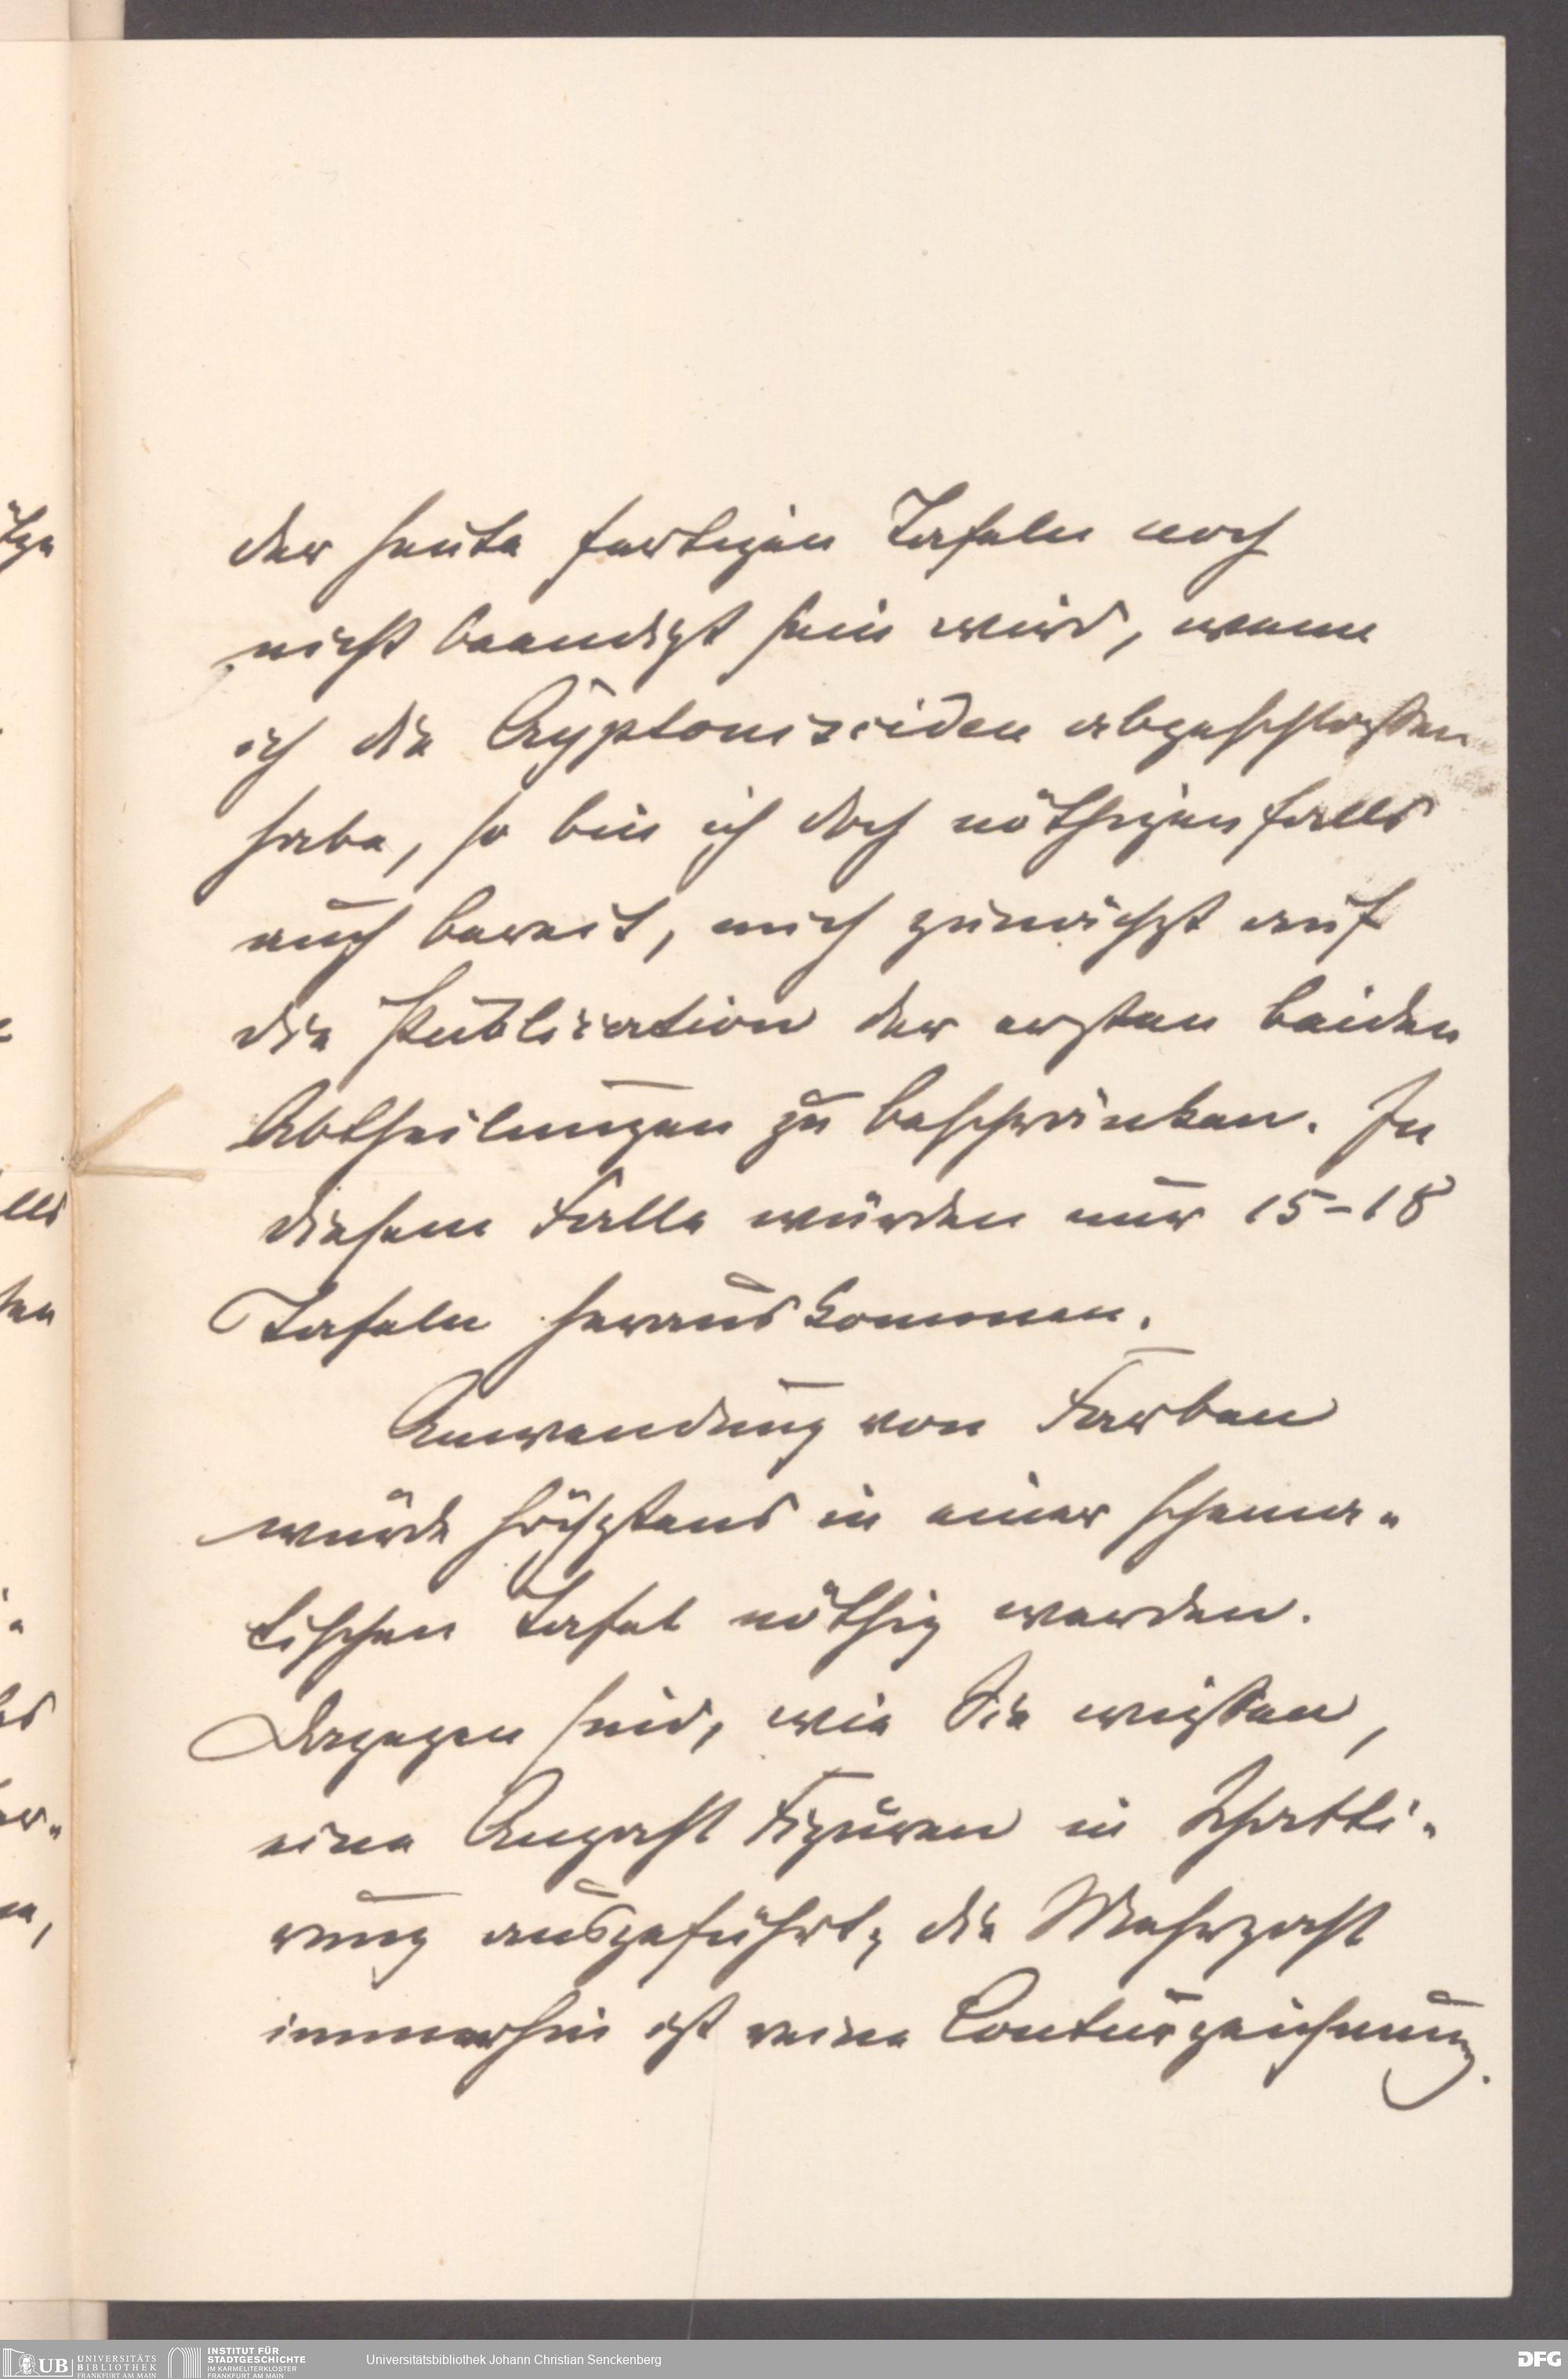 der heute fertigen Tafeln noch
nicht beendigt sein wird, wenn
ich die Cryptonisciden abgeschlossen
habe, so bin ich doch nöthigenfalls
auch bereit, mich zunächst auf
die Publication der ersten beiden
Abtheilungen zu beschränken. In
diesem Falle würden nur 15-18
Tafeln herauskommen.
Anwendung von Farben
würde höchstens in einer schema-
tischen Tafel nöthig werden.
Dagegen sind, wie Sie wissen,
eine Anzahl Figuren in Schatti-
rung ausgeführt, die Mehrzahl
immerhin ist reine Conturzeichnung.
UB UNIVERSITÄTS
BIBLIOTHEK
FRANKFURT AM MAIN
INSTITUT FÜR
STADTGESCHICHTE
IM KARMELITERKLOSTER
FRANKFURT AM MAIN
Universitätsbibliothek Johann Christian Senckenberg
DFG